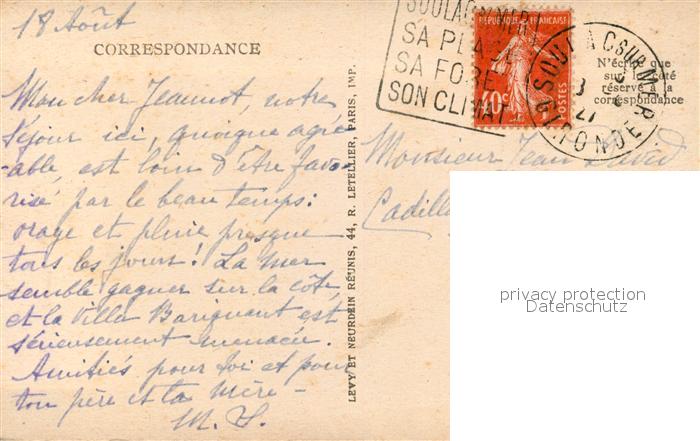 18 Août
CORRESPONDANCE
Mon cher Jeannot, notre
séjour ici, quoique agré-
able, est loin d'être favo-
risé par le beau temps:
orage et pluie presque
tous les jours! La mer
semble gagner sur la côte,
et la Villa Barignant est
sérieusement menacée.
Amitiés pour toi et pour
ton père et ta mère -
M. S.
LEVY ET NEURDEIN RÉUNIS, 44, R. LETELLIER, PARIS, IMP.
SOULAC S/MER
SA PLAGE
SA FORE
SON CLIMAT
REPUBLIQUE FRANÇAISE
40c
POSTES
SOULAC SUR MER
GIRONDE
N'écrire que
sur ce côté
réservé à la
correspondance
Monsieur Jean David
Cadill
privacy protection
Datenschutz